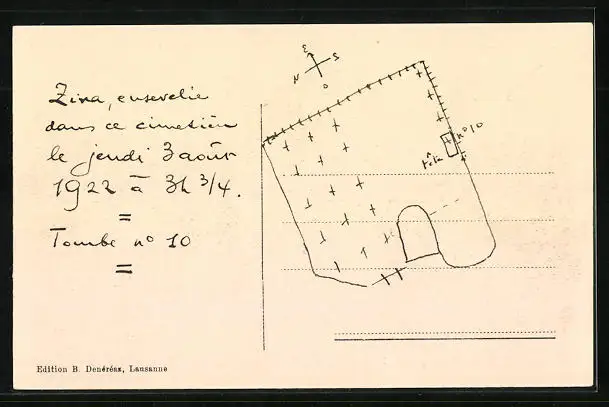 Zina, ensevelie
dans ce cimetière
le jeudi 3 août
1922 à 3h 3/4.
=
Tombe no 10
=
E
S
N
O
no 10
tête
Edition B. Denéréaz, Lausanne